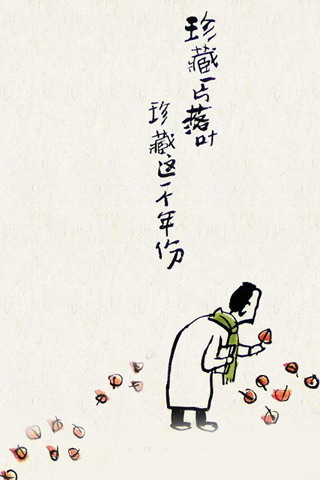 珍藏一片落叶
珍藏这一个年份